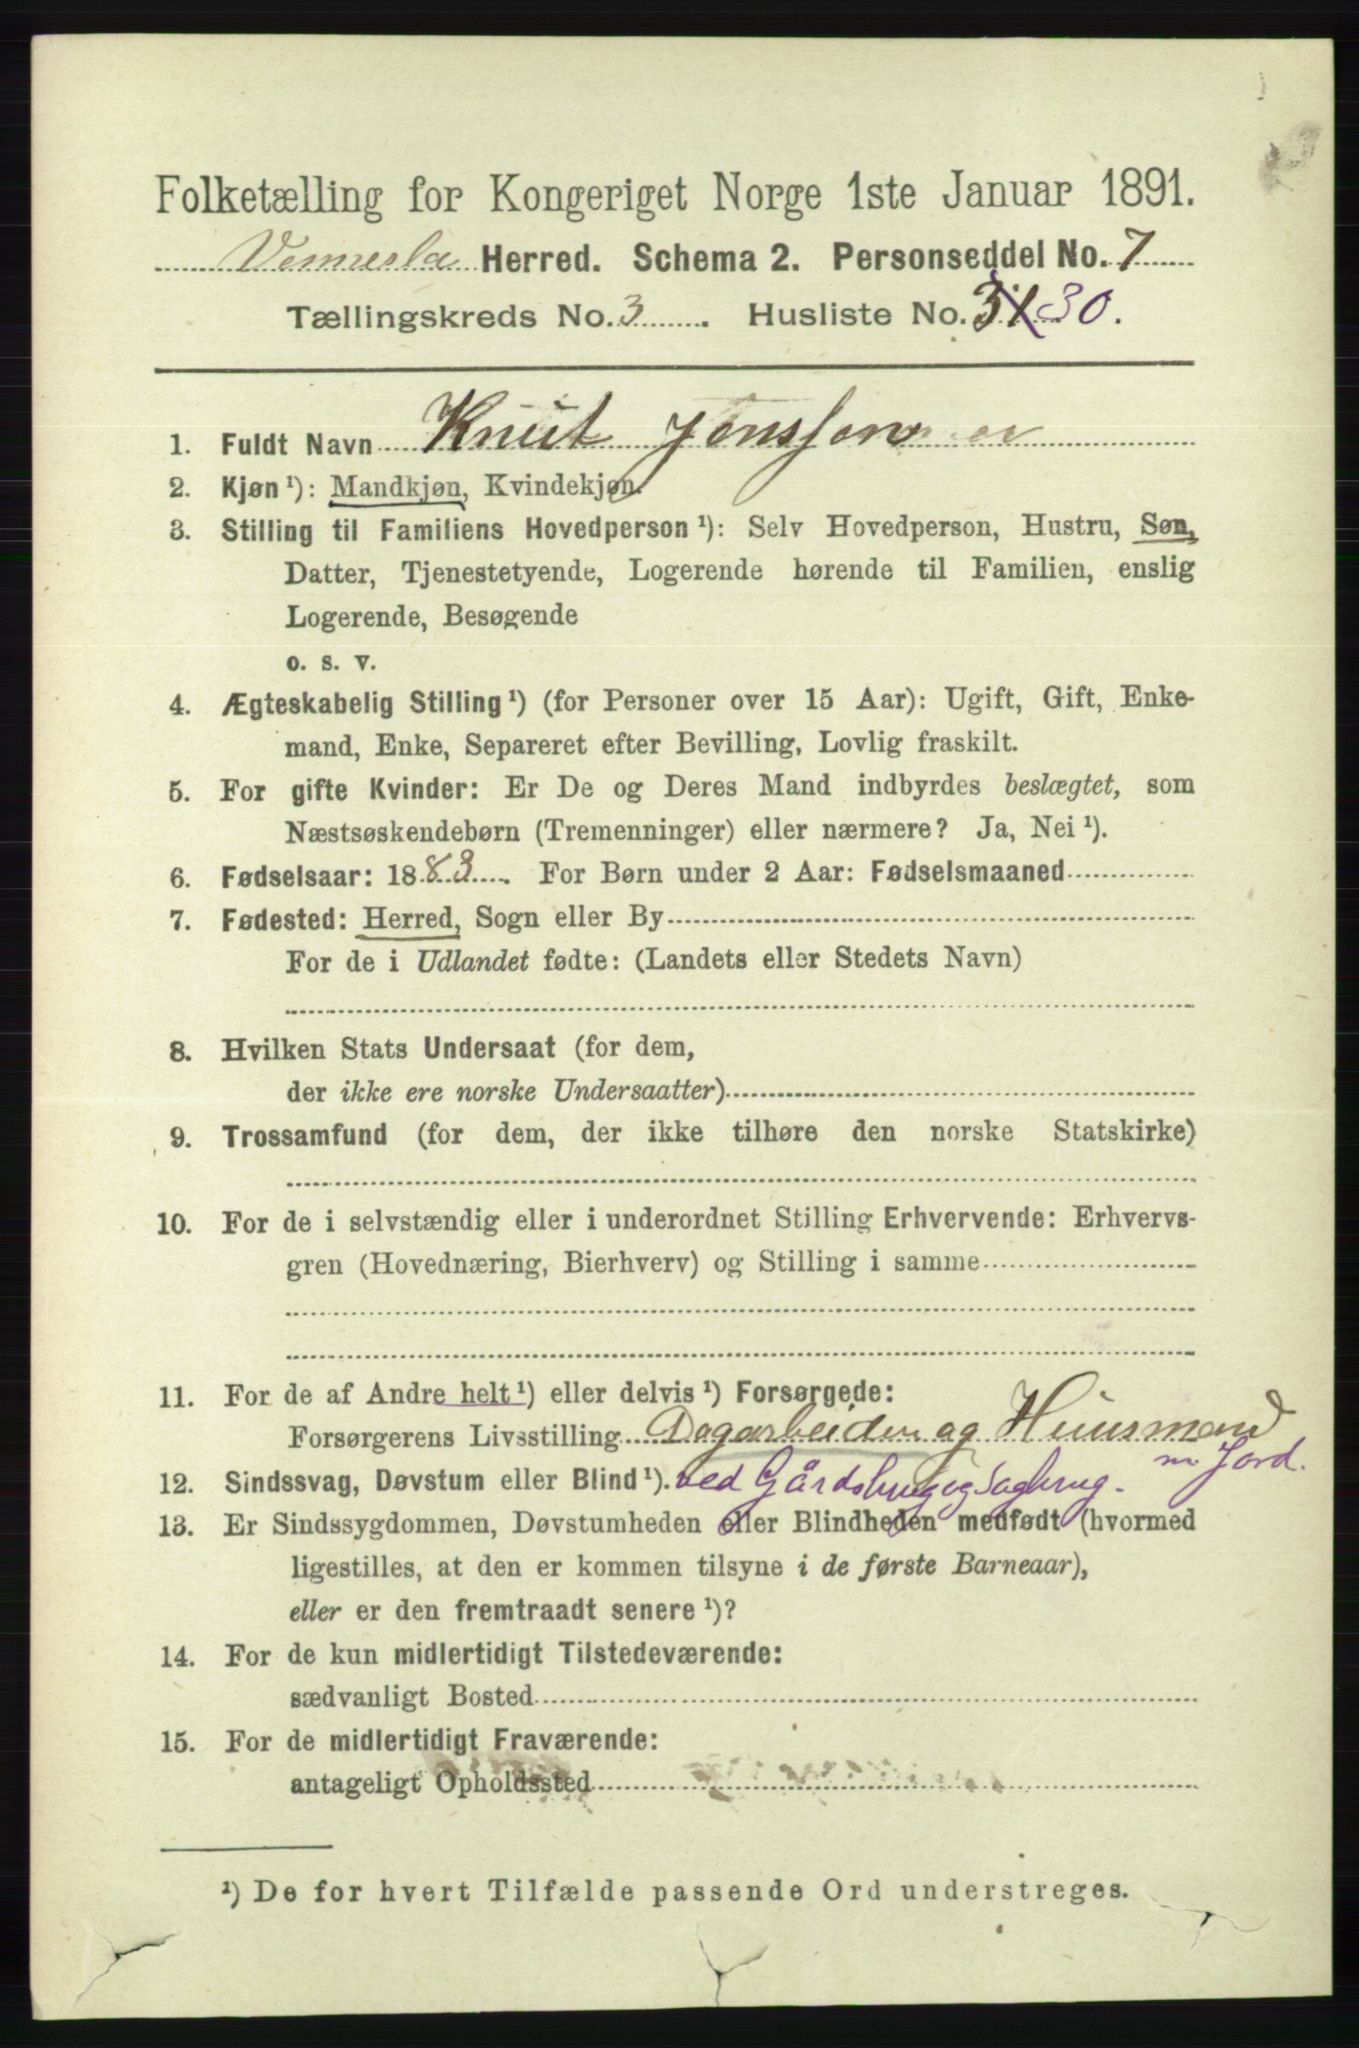 Folketælling for Kongeriget Norge 1ste Januar 1891.
Vennesla Herred. Schema 2. Personseddel No. 7
Tællingskreds No. 3. Husliste No. 31 30.
1. Fuldt Navn Knut Jensson
2. Kjøn ¹): Mandkjøn, Kvindekjøn.
3. Stilling til Familiens Hovedperson ¹): Selv Hovedperson, Hustru, Søn,
Datter, Tjenestetyende, Logerende hørende til Familien, enslig
Logerende, Besøgende
o. s. v.
4. Ægteskabelig Stilling ¹) (for Personer over 15 Aar): Ugift, Gift, Enke-
mand, Enke, Separeret efter Bevilling, Lovlig fraskilt.
5. For gifte Kvinder: Er De og Deres Mand indbyrdes beslægtet, som
Næstsøskendebørn (Tremenninger) eller nærmere? Ja, Nei ¹).
6. Fødselsaar: 1883. For Børn under 2 Aar: Fødselsmaaned
7. Fødested: Herred, Sogn eller By
For de i Udlandet fødte: (Landets eller Stedets Navn)
8. Hvilken Stats Undersaat (for dem,
der ikke ere norske Undersaatter)
9. Trossamfund (for dem, der ikke tilhøre den norske Statskirke)
10. For de i selvstændig eller i underordnet Stilling Erhvervende: Erhvervs-
gren (Hovednæring, Bierhverv) og Stilling i samme
11. For de af Andre helt ¹) eller delvis ¹) Forsørgede:
Forsørgerens Livsstilling Dagarbeider og Huusmand
m Jord.
12. Sindssvag, Døvstum eller Blind ¹). ved Gårdsbrug og Sagbrug.
13. Er Sindssygdommen, Døvstumheden eller Blindheden medfødt (hvormed
ligestilles, at den er kommen tilsyne i de første Barneaar),
eller er den fremtraadt senere ¹)?
14. For de kun midlertidigt Tilstedeværende:
sædvanligt Bosted
15. For de midlertidigt Fraværende:
antageligt Opholdssted
¹) De for hvert Tilfælde passende Ord understreges.